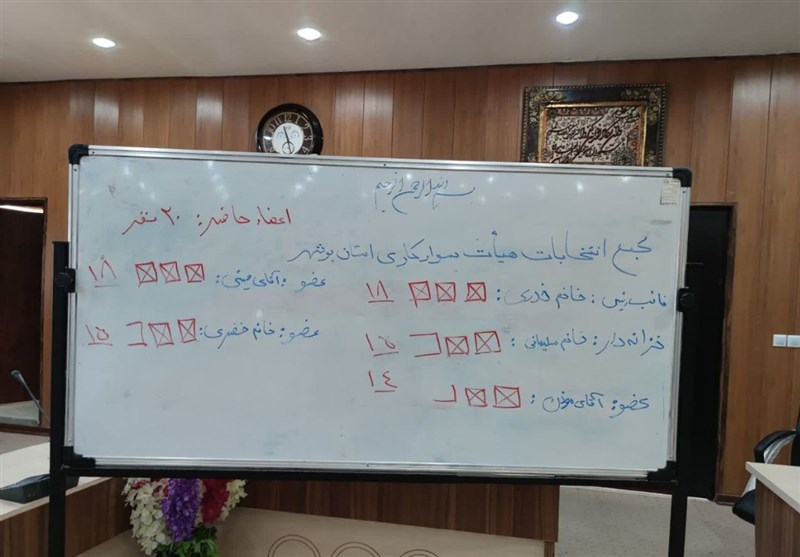 بسم الله الرحمن الرحیم
اعضاء حاضر: ۲۰ نفر
مجمع انتخابات هیأت سوارکاری استان بوشهر
نائب رئیس: خانم خدری: ۱۸
خزانه دار: خانم سلیمانی: ۱۵
عضو: آقای: ۱۴
عضو: آقای: ۱۸
عضو: خانم خضری: ۱۵